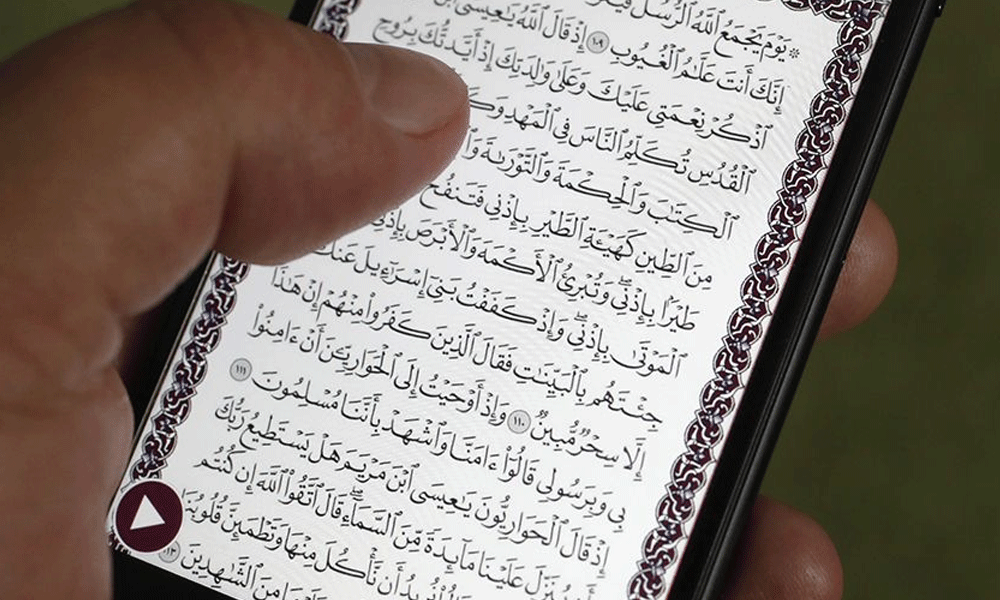 ۞ يَوْمَ يَجْمَعُ ٱللَّهُ ٱلرُّسُلَ
إِنَّكَ أَنتَ عَلَّٰمُ ٱلْغُيُوبِ ١٠٩ إِذْ قَالَ ٱللَّهُ يَٰعِيسَى ٱبْنَ
ٱذْكُرْ نِعْمَتِى عَلَيْكَ وَعَلَىٰ وَٰلِدَتِكَ إِذْ أَيَّدتُّكَ بِرُوحِ
ٱلْقُدُسِ تُكَلِّمُ ٱلنَّاسَ فِى ٱلْمَهْدِ
ٱلْكِتَٰبَ وَٱلْحِكْمَةَ وَٱلتَّوْرَىٰةَ
مِنَ ٱلطِّينِ كَهَيْـَٔةِ ٱلطَّيْرِ بِإِذْنِى فَتَنفُخُ
طَيْرًۢا بِإِذْنِى وَتُبْرِئُ ٱلْأَكْمَهَ وَٱلْأَبْرَصَ بِإِذْنِى
ٱلْمَوْتَىٰ بِإِذْنِى وَإِذْ كَفَفْتُ بَنِىٓ إِسْرَٰٓءِيلَ عَنكَ
جِئْتَهُم بِٱلْبَيِّنَٰتِ فَقَالَ ٱلَّذِينَ كَفَرُوا۟ مِنْهُمْ إِنْ هَٰذَآ
إِلَّا سِحْرٌ مُّبِينٌ ١١٠ وَإِذْ أَوْحَيْتُ إِلَى ٱلْحَوَارِيِّـۧنَ أَنْ ءَامِنُوا۟
بِى وَبِرَسُولِى قَالُوٓا۟ ءَامَنَّا وَٱشْهَدْ بِأَنَّنَا مُسْلِمُونَ ١١١
إِذْ قَالَ ٱلْحَوَارِيُّونَ يَٰعِيسَى ٱبْنَ مَرْيَمَ هَلْ يَسْتَطِيعُ رَبُّكَ
يُنَزِّلَ عَلَيْنَا مَآئِدَةً مِّنَ ٱلسَّمَآءِ قَالَ ٱتَّقُوا۟ ٱللَّهَ إِن كُنتُم
نُرِيدُ أَن نَّأْكُلَ مِنْهَا وَتَطْمَئِنَّ قُلُوبُنَا
مِنَ ٱلشَّٰهِدِينَ ١١٣